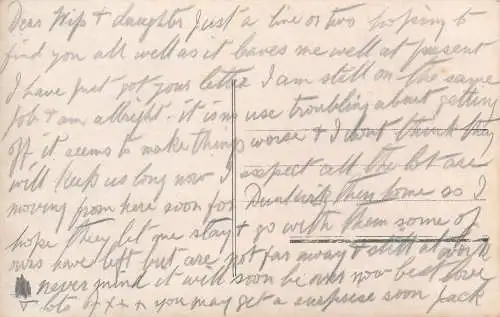 Dear Wife + daughter Just a line or two hoping to
find you all well as it leaves me well at present
I have just got your letter I am still on the same
Job + am allright. it is no use troubling about getting
off it seems to make things worse + I dont think they
will keep us long now I expect all the lot are
moving from here soon for Dunkirk they come so I
hope they let me stay + go with them some of
ours have left but are not far away + still at work
never mind it will soon be over now best love
+ lots of x x x you may get a surprise soon Jack